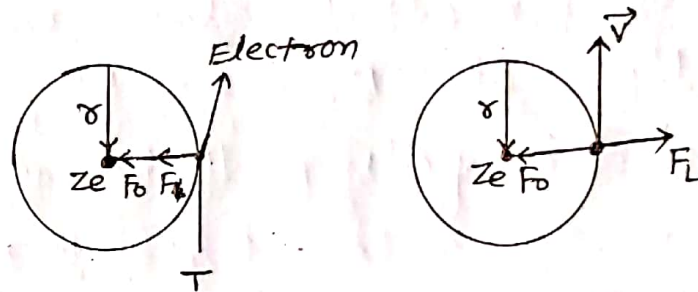 Electron
r
Ze F₀ F_L
T
V⃗
r
Ze F₀
F_L